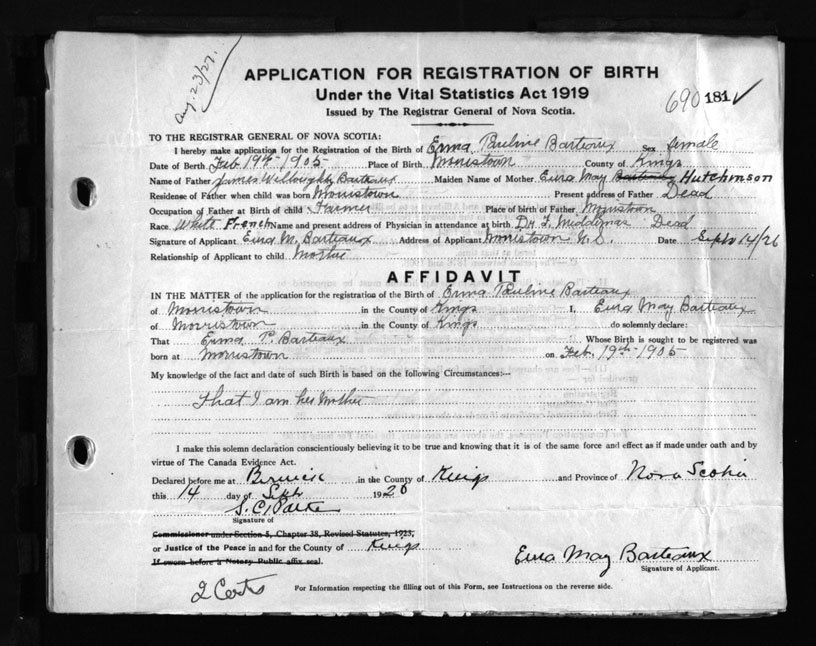 Aug. 23/27.
APPLICATION FOR REGISTRATION OF BIRTH
Under the Vital Statistics Act 1919
Issued by The Registrar General of Nova Scotia.
690 181 ✓
TO THE REGISTRAR GENERAL OF NOVA SCOTIA:
I hereby make application for the Registration of the Birth of Erma Pauline Barteaux Sex female
Date of Birth Feb 19th 1905 Place of Birth Morristown County of Kings
Name of Father James Willoughby Barteaux Maiden Name of Mother Eura May Hutchinson
Residence of Father when child was born Morristown Present address of Father Dead
Occupation of Father at Birth of child Farmer Place of birth of Father Morristown
Race White French Name and present address of Physician in attendance at birth Dr Dead
Signature of Applicant Eura M. Barteaux Address of Applicant Morristown N.S. Date Sept 14/26
Relationship of Applicant to child Mother
AFFIDAVIT
IN THE MATTER of the application for the registration of the Birth of Erma Pauline Barteaux
of Morristown in the County of Kings I, Eura May Barteaux
of Morristown in the County of Kings do solemnly declare:
That Erma P. Barteaux Whose Birth is sought to be registered was
born at Morristown on Feb. 19th 1905
My knowledge of the fact and date of such Birth is based on the following Circumstances:—
That I am her Mother
I make this solemn declaration conscientiously believing it to be true and knowing that it is of the same force and effect as if made under oath and by
virtue of The Canada Evidence Act.
Declared before me at Berwick in the County of Kings and Province of Nova Scotia
this 14 day of Sept 1926
S. C. Parker
Signature of
Commissioner under Section 5, Chapter 38, Revised Statutes, 1923,
or Justice of the Peace in and for the County of Kings
If sworn before a Notary Public affix seal.
Eura May Barteaux
Signature of Applicant.
2 Certs
For Information respecting the filling out of this Form, see Instructions on the reverse side.